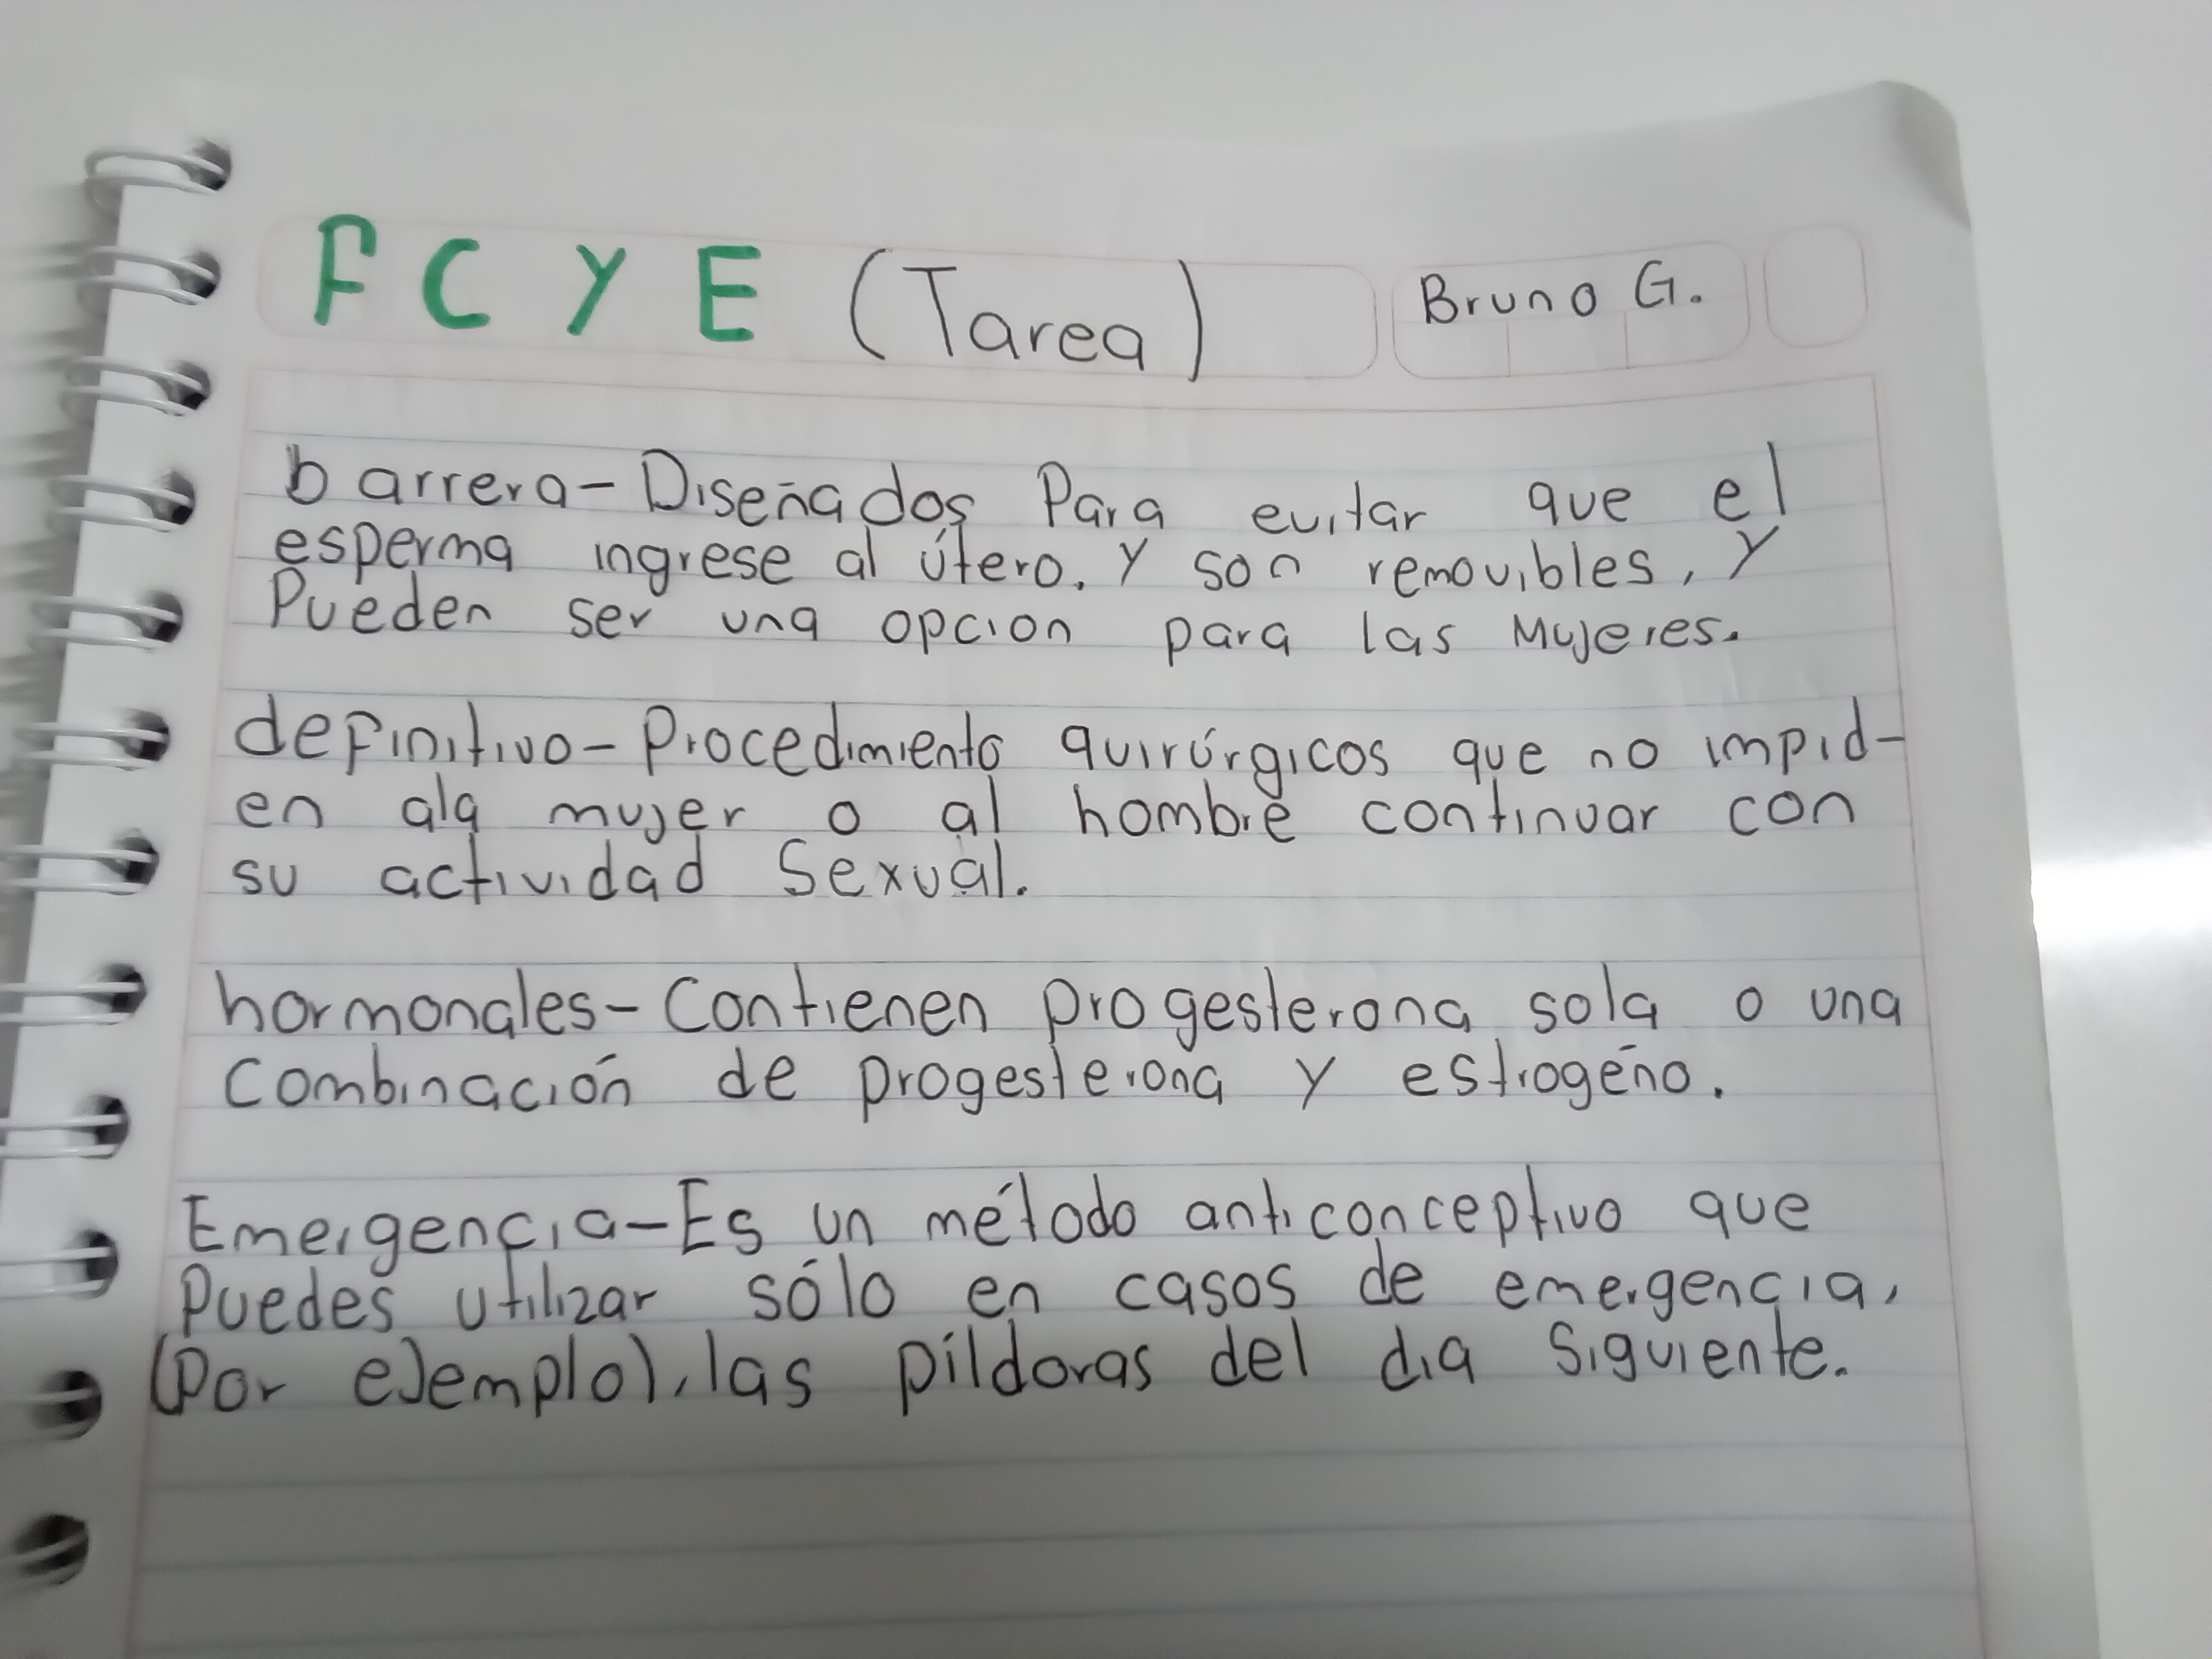 F C Y E (Tarea) Bruno G.
barrera-Diseñados Para evitar que el
esperma ingrese al útero. Y son removibles, Y
Pueden ser una opcion para las Mujeres.
definitivo-Procedimiento quirúrgicos que no impid-
en ala mujer o al hombre continuar con
su actividad Sexual.
hormonales-Contienen progesterona sola o una
Combinación de progesterona y estrogeno.
Emergencia-Es un método anticonceptivo que
Puedes utilizar sólo en casos de emergencia,
(Por ejemplo), las píldoras del dia Siguiente.